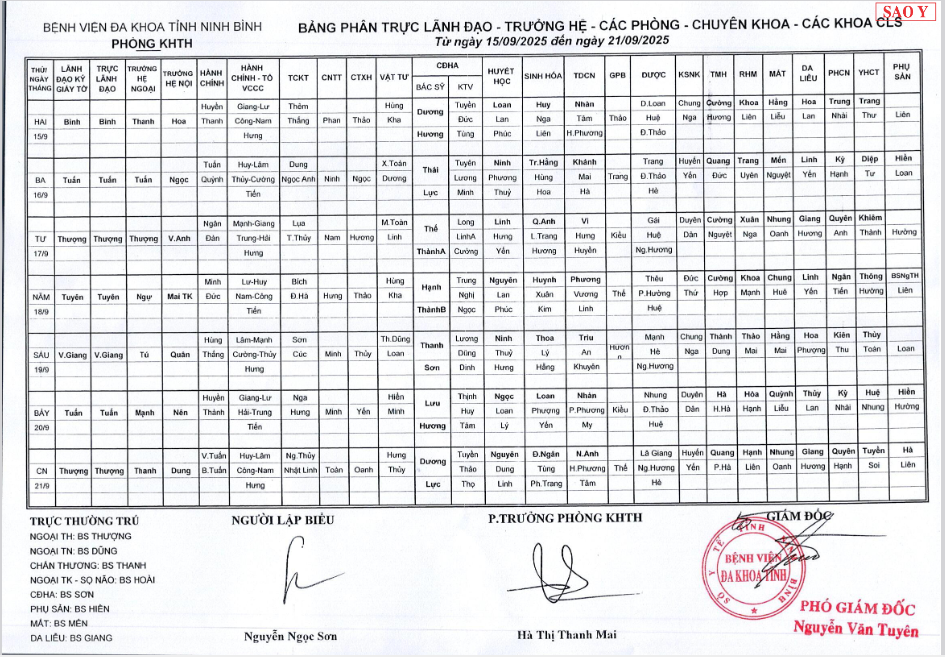 SAO Y
BỆNH VIỆN ĐA KHOA TỈNH NINH BÌNH
PHÒNG KHTH
BẢNG PHÂN TRỰC LÃNH ĐẠO - TRƯỞNG HỆ - CÁC PHÒNG - CHUYÊN KHOA - CÁC KHOA CLS
Từ ngày 15/09/2025 đến ngày 21/09/2025
THỨ NGÀY THÁNG | LÃNH ĐẠO KÝ GIẤY TỜ | TRỰC LÃNH ĐẠO | TRƯỞNG HỆ NGOẠI | TRƯỞNG HỆ NỘI | HÀNH CHÍNH | HÀNH CHÍNH - TỔ VCCC | TCKT | CNTT | CTXH | VẬT TƯ | CĐHA | HUYẾT HỌC | SINH HÓA | TDCN | GPB | DƯỢC | KSNK | TMH | RHM | MẮT | DA LIỄU | PHCN | YHCT | PHỤ SẢN
BÁC SỸ | KTV
Huyền | Giang-Lư | Thêm | Hùng | Dương | Tuyển | Loan | Huy | Nhàn | D.Loan | Chung | Cường | Khoa | Hằng | Hoa | Trung | Trang
HAI | Bình | Bình | Thanh | Hoa | Thanh | Công-Nam | Thắng | Phan | Thảo | Kha | Đức | Lan | Nga | Tâm | Thảo | Huệ | Nga | Hương | Liên | Liễu | Lan | Nhài | Thư | Liên
15/9 | Hưng | Hương | Tùng | Phúc | Liên | H.Phương | Đ.Thảo
Tuấn | Huy-Lâm | Dung | X.Toán | Thái | Tuyên | Ninh | Tr.Hằng | Khánh | Trang | Huyền | Quang | Trang | Mến | Linh | Kỳ | Diệp | Hiền
BA | Tuấn | Tuấn | Tuấn | Ngọc | Quỳnh | Thủy-Cường | Ngọc Anh | Ninh | Ngọc | Dương | Lương | Phương | Hùng | Mai | Trang | Đ.Thảo | Yến | Đức | Uyên | Nguyệt | Yến | Hạnh | Tư | Loan
16/9 | Tiến | Lực | Minh | Thuỷ | Hoa | Hà | Hè
Ngân | Mạnh-Giang | Lụa | M.Toàn | Thế | Long | Linh | Q.Anh | Vi | Gái | Duyên | Cường | Xuân | Nhung | Giang | Quyên | Khiêm
TƯ | Thượng | Thượng | Thượng | V.Anh | Đán | Trung-Hải | T.Thủy | Nam | Hương | Linh | LinhA | Hưng | L.Trang | Hưng | Kiều | Huệ | Dân | Nguyệt | Nga | Oanh | Hương | Anh | Thành | Hường
17/9 | Hưng | ThànhA | Cường | Yến | Hương | Huyền | Ng.Hương
Minh | Lư-Huy | Bích | Hùng | Hạnh | Trung | Nguyên | Huynh | Phương | Thêu | Đức | Cường | Khoa | Chung | Linh | Ngân | Thông | BSNgTH
NĂM | Tuyên | Tuyên | Ngự | Mai TK | Đức | Nam-Công | Đ.Hà | Hưng | Thảo | Kha | Nghị | Lan | Xuân | Vương | Thế | P.Hường | Thứ | Hợp | Mạnh | Huê | Yến | Tiến | Hường | Liên
18/9 | Tiến | ThànhB | Ngọc | Phúc | Kim | Linh | Huệ
Hùng | Lâm-Mạnh | Sơn | Th.Dũng | Thanh | Lương | Ninh | Thoa | Triu | Mạnh | Chung | Thành | Thảo | Hằng | Hoa | Kiên | Thủy
SÁU | V.Giang | V.Giang | Tú | Quân | Thắng | Cường-Thủy | Cúc | Minh | Thủy | Loan | Dũng | Thuỷ | Lý | An | Hươn n | Hè | Nga | Dung | Mai | Mai | Phượng | Thu | Toán | Loan
19/9 | Hưng | Sơn | Dinh | Hưng | Hằng | Khuyên | Ng.Hương
Huyền | Giang-Lư | Nga | Hiền | Lưu | Thịnh | Ngọc | Loan | Nhàn | Nhung | Duyên | Hà | Hòa | Quỳnh | Thủy | Kỳ | Huệ | Hiền
BẢY | Tuấn | Tuấn | Mạnh | Nên | Thành | Hải-Trung | Hưng | Minh | Yến | Minh | Huy | Loan | Phượng | P.Phương | Kiều | Đ.Thảo | Dân | H.Hà | Hạnh | Liễu | Lan | Nhài | Nhung | Hường
20/9 | Tiến | Hương | Tâm | Lý | Yến | My | Huệ
V.Tuấn | Huy-Lâm | Ng.Thủy | Hưng | Dương | Tuyển | Nguyên | Đ.Ngân | N.Anh | Lã Giang | Huyền | Quang | Hạnh | Nhung | Giang | Quyên | Tuyền | Hà
CN | Thượng | Thượng | Thanh | Dung | B.Tuấn | Công-Nam | Nhật Linh | Toàn | Oanh | Thủy | Thảo | Dung | Tùng | H.Phương | Thế | Ng.Hương | Yến | P.Hà | Liên | Oanh | Hương | Hạnh | Soi | Liên
21/9 | Hưng | Lực | Thọ | Linh | Ph.Trang | Tâm | Hè
TRỰC THƯỜNG TRÚ
NGOẠI TH: BS THƯỢNG
NGOẠI TN: BS DŨNG
CHẤN THƯƠNG: BS THANH
NGOẠI TK - SỌ NÃO: BS HOÀI
CĐHA: BS SƠN
PHỤ SẢN: BS HIỀN
MẮT: BS MẾN
DA LIỄU: BS GIANG
NGƯỜI LẬP BIỂU
Nguyễn Ngọc Sơn
P.TRƯỞNG PHÒNG KHTH
Hà Thị Thanh Mai
GIÁM ĐỐC
SỞ Y TẾ TỈNH NINH BÌNH
BỆNH VIỆN
ĐA KHOA TỈNH
PHÓ GIÁM ĐỐC
Nguyễn Văn Tuyên